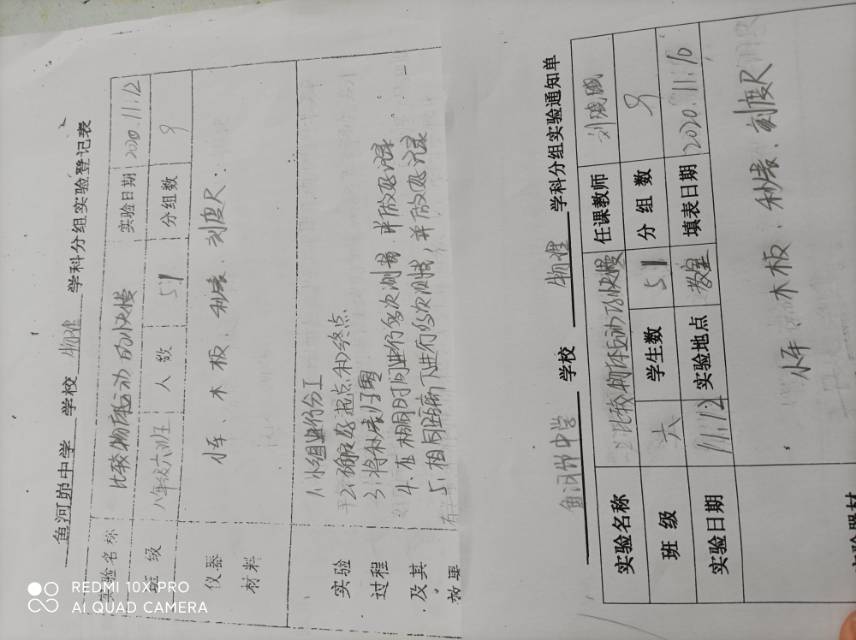 鱼河峁中学 学校 物理 学科分组实验登记表
实验名称 比较物体运动的快慢 实验日期 2020.11.12
班级 八年级六班 人数 51 分组数 9
仪器材料 小车、木板、秒表、刻度尺.
实验过程及其效果
1.小组进行分工
2.确定好起点和终点.
3.将秒表归零
4.在相同时间进行多次测量,并做好记录
5.相同距离下进行多次测试,并做好记录
鱼河峁中学 学校 物理 学科分组实验通知单
实验名称 比较物体运动的快慢 任课教师
班级 六 学生数 51 分组数 9
实验日期 11.12 实验地点 教室 填表日期 2020.11.10
小车、木板、秒表、刻度尺
REDMI 10X PRO
AI QUAD CAMERA